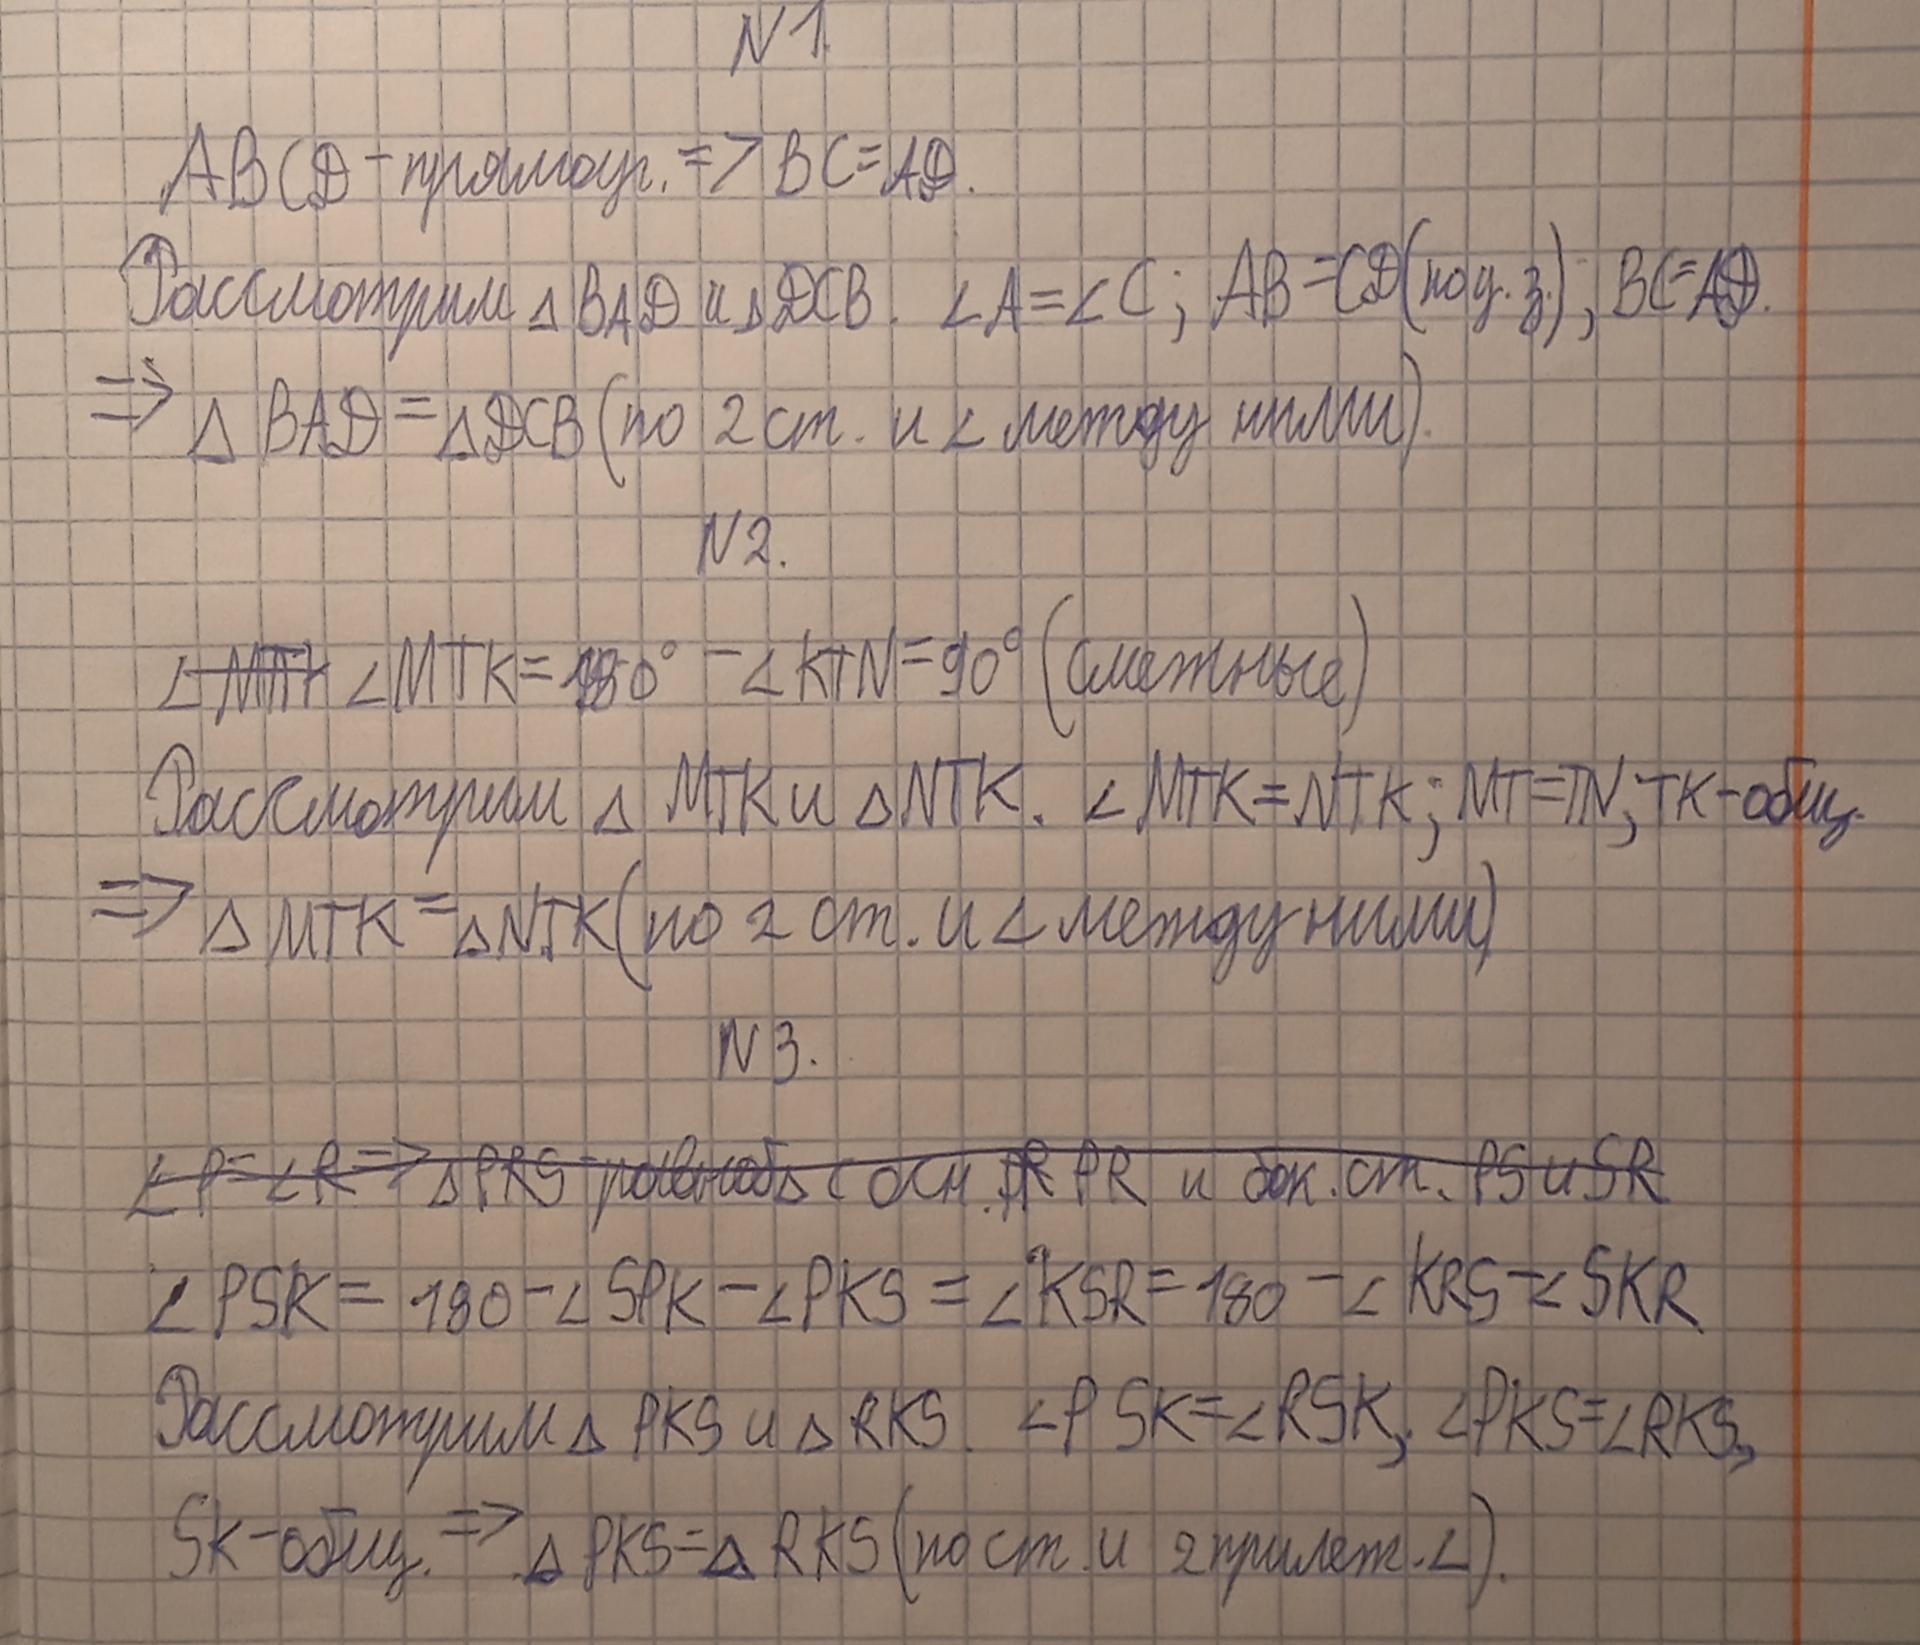 N1.
ABCD-прямоуг. => BC=AD.
Рассмотрим △BAD и △DCB. ∠A=∠C; AB=CD(по у. з.); BC=AD.
=> △BAD=△DCB(по 2 ст. и ∠ между ними).
N2.
∠MTK ∠MTK=180°-∠KTN=90° (смежные)
Рассмотрим △MTK и △NTK. ∠MTK=NTK; MT=TN; TK-общ.
=> △MTK=△NTK(по 2 ст. и ∠ между ними)
N3.
∠P=∠R=> △PRS-равноб△ с осн. PR и бок. ст. PS и SR
∠PSK=180-∠SPK-∠PKS=∠KSR=180-∠KRS-∠SKR
Рассмотрим △PKS и △RKS. ∠PSK=∠RSK, ∠PKS=∠RKS,
SK-общ. => △PKS=△RKS(по ст. и 2 прилеж. ∠).